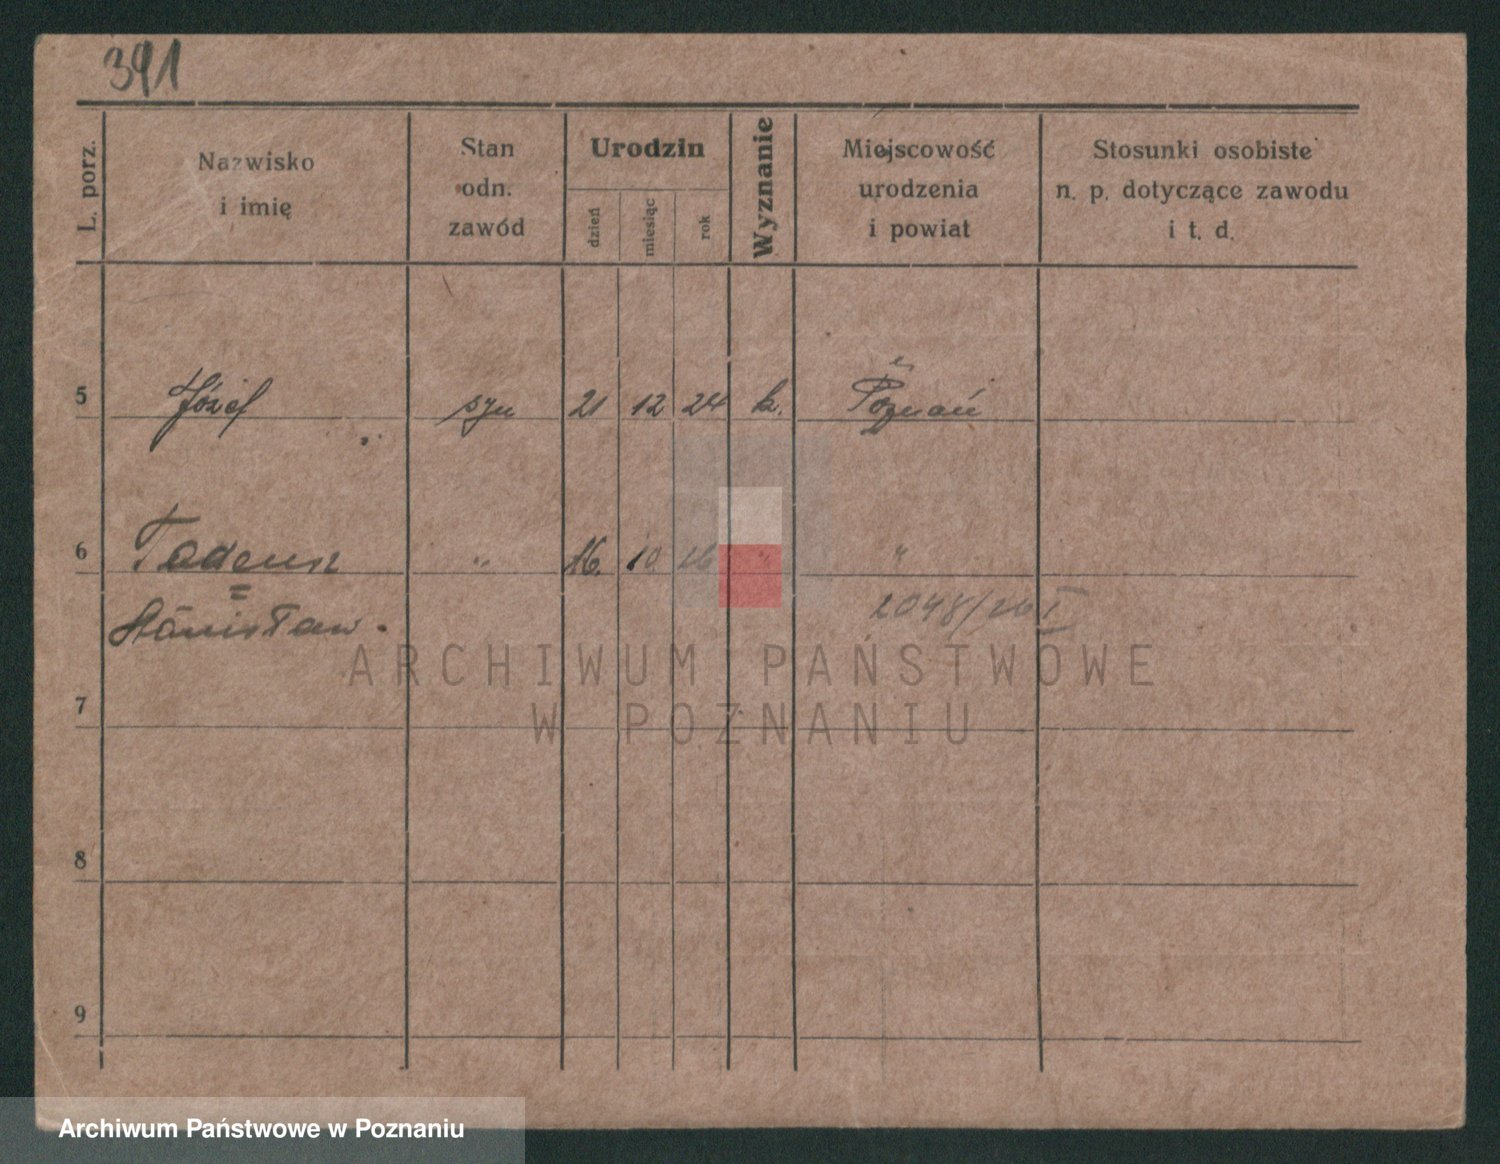 391
L. porz.
Nazwisko
i imię
Stan
odn.
zawód
Urodzin
dzień
miesiąc
rok
Wyznanie
Miejscowość
urodzenia
i powiat
Stosunki osobiste
n. p. dotyczące zawodu
i t. d.
5 Józef syn 21 12 24 k. Poznań
6 Tadeusz " 16. 10 26 " "
Stanisław. 2048/26 I
ARCHIWUM PAŃSTWOWE
W POZNANIU
7
8
9
Archiwum Państwowe w Poznaniu